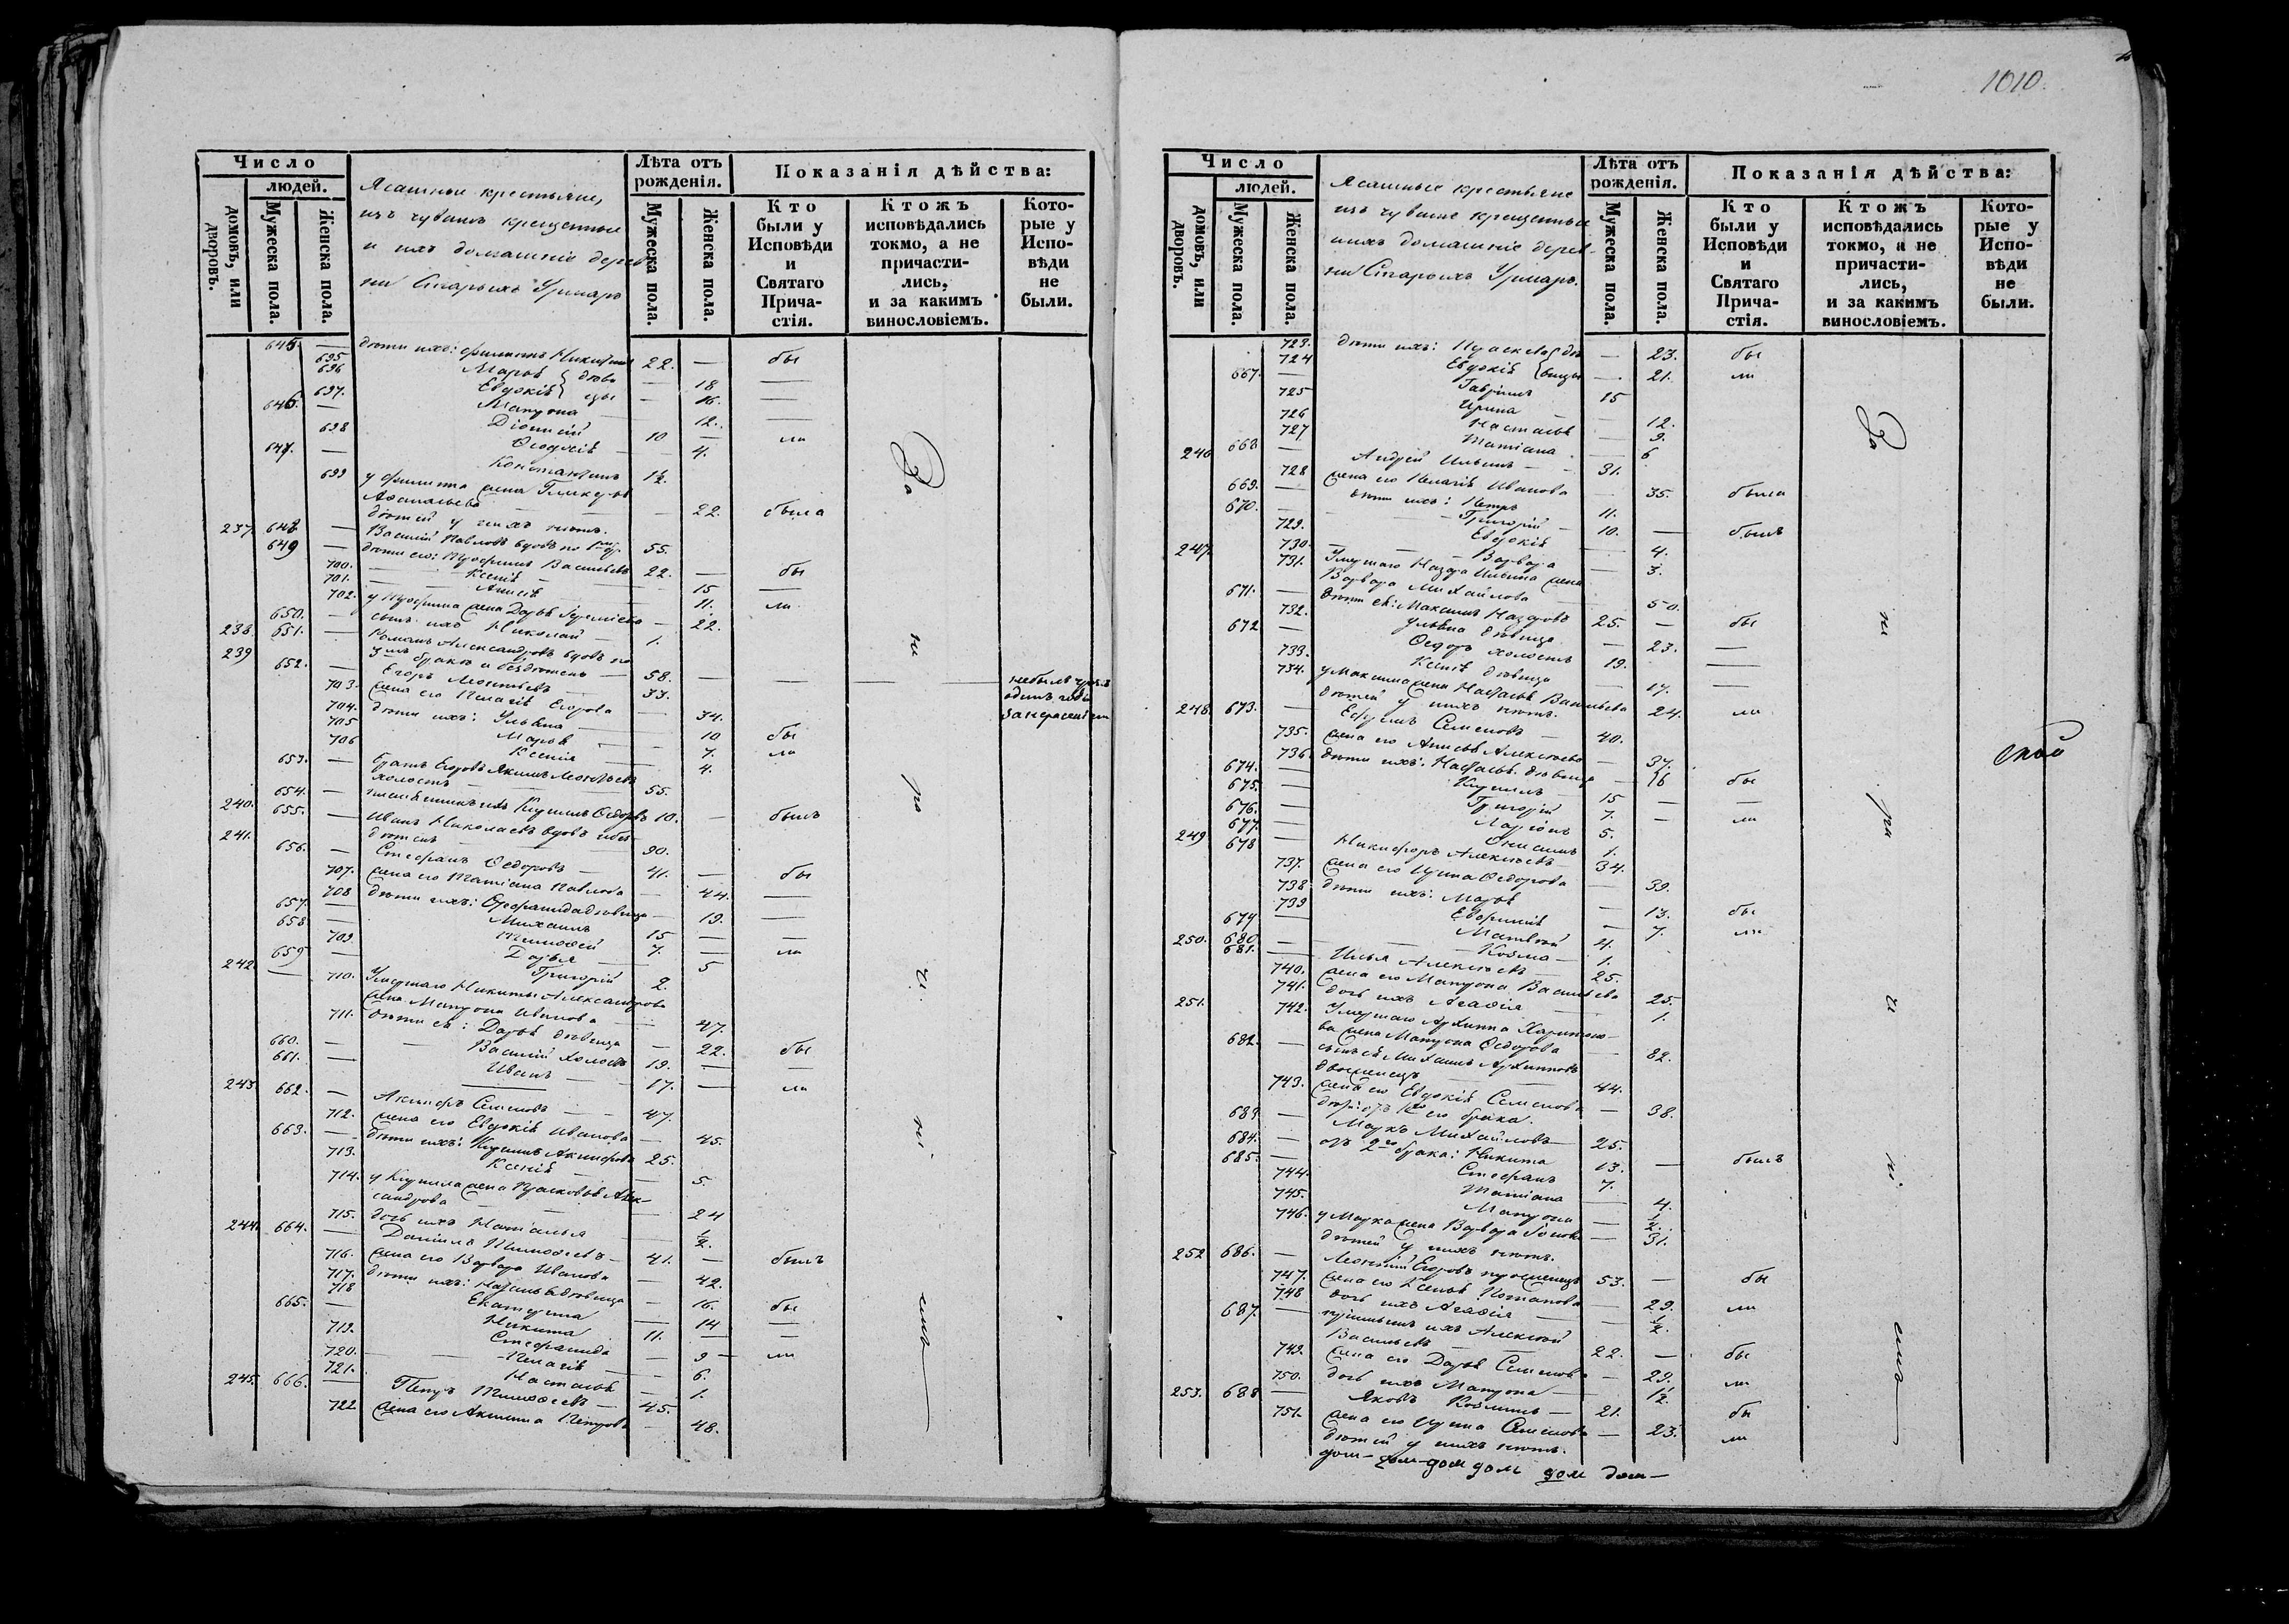 1010.
Число
людей.
домовъ, или дворовъ.
Мужеска пола.
Женска пола.
Ясашные крестьяне,
изъ чувашъ крещенные
и ихъ домашніе дерев
ни Старыхъ Урмаръ
Лѣта отъ рожденія.
Мужеска пола.
Женска пола.
Показанія дѣйства:
Кто были у Исповѣди и Святаго Прича-стія.
Ктожъ исповѣдались токмо, а не причасти-лись, и за какимъ винословіемъ.
Кото-рые у Испо-вѣди не были.
645. — дѣти ихъ: Филиппъ Никифоровъ 22. — бы
695 Марѳа } дѣви — 18 —
696 Евдокія } цы — 16. —
697. Матрона — 12. —
646. — Діонисій 10 — ли
698 Ѳеодосія — 4.
647. — Константинъ 1½.
699 у Филиппа жена Гликерія
Аѳанасьева — 22. была
дѣтей у нихъ нѣтъ.
237 648 — Василій Павловъ вдовъ по 55.
649 — дѣти его: Трофимъ Васильевъ 22. — бы
700. Ксенія — 15 —
701. Анисія — 11. ли
702. у Трофима жена Дарья Еремѣева — 22.
650. — сынъ ихъ Николай — 1.
238. 651. — Романъ Александровъ вдовъ по
бракѣ и бездѣтенъ — 58. —
239 652. — Егоръ Леонтьевъ — 33.
703. жена его Пелагія Егорова — 34.
704. дѣти ихъ: Ульяна — 10 бы
705 Марѳа — 7. ли
706 Ксенія — 4.
653. — братъ Егоровъ Якимъ Леонтьевъ
холостъ — 55.
654. — племянникъ ихъ Кириллъ Ѳедоровъ 10. — былъ
240. 655. — Иванъ Николаевъ вдовъ и без
дѣтенъ — 90.
241. 656. — Стефанъ Ѳедоровъ — 41. — бы
707. жена его Татіана Павлова — 44. —
708 дѣти ихъ: дѣвица — 19. —
657. — Михаилъ 15 — —
658 — Тимофей 7. — ли
709. Дарья — 5
659 — Григорій 2.
242. — 710. Умершаго Никиты Александрова
жена Матрона Иванова — 47.
711. дѣти ея: Дарья дѣвица — 22. бы
660. — Василій холостъ 19. — —
661. — Иванъ — 17. — ли
243. 662. — Семеновъ — 47.
712. жена его Евдокія Иванова — 45.
663. — дѣти ихъ: Кириллъ 25.
713. Ксенія — 5.
714. у Кирилла жена Прасковья Алек-
сандрова — 24
715. дочь ихъ Наталья — ½.
244. 664. — Даніилъ Тимоѳеевъ — 41. — былъ
716. жена его Варвара Иванова — 42.
717. дѣти ихъ: дѣвица — 16. бы
718 Екатерина — 14 —
665. — Никита 11. — —
719. Стефанида — 9 — ли
720. Пелагія — 6.
721. Настасья — 1.
245. 666. — Петръ Тимоѳеевъ — 45.
722 жена его Акилина Петрова — 48.
За
не
ро
ч.
ні.
емъ
не былъ чрезъ
одинъ годъ
за нераденіемъ
Число
людей.
домовъ, или дворовъ.
Мужеска пола.
Женска пола.
Ясашные крестьяне
изъ чувашъ крещенные
и ихъ домашніе дерев-
ни Старыхъ Урмаръ.
Лѣта отъ рожденія.
Мужеска пола.
Женска пола.
Показанія дѣйства:
Кто были у Исповѣди и Святаго Прича-стія.
Ктожъ исповѣдались токмо, а не причасти-лись, и за какимъ винословіемъ.
Кото-рые у Испо-вѣди не были.
723. дѣти ихъ: Праскева { дѣ — 23. бы
724 Евдокія { вицы — 21. ли
667. — Гавріилъ 15
725 Ирина — 12.
726 Настасья — 9.
727 Татіана — 6
246 668 — Андрей Ильинъ — 31.
728 жена его Пелагія Иванова — 35. была
669. — дѣти ихъ: Петръ 11.
670. — Григорій — 10. — былъ
729. Евдокія — 4.
730. Варвара — 3.
247. 731. Умершаго Назара Ильина жена
Варвара Михайлова — 50.
671. — дѣти ея: Максимъ Назаровъ 25. — бы
732. Ульяна дѣвица — 23. —
672 — Ѳедоръ холостъ 19. —
733. Ксенія дѣвица — 17. —
734. у Максима жена Настасья Васильева 24. ли
дѣтей у нихъ нѣтъ.
248. 673. — Ефремъ Семеновъ — 40.
735. жена его Анисья Алексѣева — 37.
736. дѣти ихъ: Настасья дѣвица — 16 бы
674. — Кириллъ 15 — —
675. — Григорій 7. — ли
676. — Ларіонъ 5.
677. — Онисимъ 1.
249 678 — Никифоръ Алексѣевъ 34.
737. жена его Ирина Ѳедорова — 39.
738 дѣти ихъ: Марья — 13. бы
739 — 7. ли
679 — Матвей 4.
680 — Козма — 1.
250. 681. — Илья Алексѣевъ — 25.
740. жена его Матрона Васильева 25.
741. дочь ихъ Агафія — 1.
251. 742. Умершаго Архиппа Харитоно-
ва жена Матрона Ѳедорова — 82.
682. — сынъ ея Михаилъ Архипповъ
двоеженецъ — 44.
743. жена его Евдокія Семенова — 38.
дѣти отъ 1го его брака.
683. — Марко Михайловъ — 25.
684. — отъ 2го брака: Никита 13. — былъ
685. — Стефанъ 7.
744. Татіана — 4.
745. Матрона — ½.
746. у Марка жена Варвара — 31.
дѣтей у нихъ нѣтъ.
252 686. — Леонтій Егоровъ троеженецъ 53. — бы
747. жена его Ксенья Потапова — 29. ли
748 дочь ихъ Агафія — ½.
687. — пріимышъ ихъ Алексей
Васильевъ — 22. — бы
749. жена его Дарья Семенова — 29. ли
750. дочь ихъ Матрона — 1½.
253. 688 — Яковъ Козминъ — 21. бы
751. жена его Ирина Семенова — 23. ли
дѣтей у нихъ нѣтъ.
дом— дом— дом дом дом дом—
За
не
ра
ч
ні.
емъ